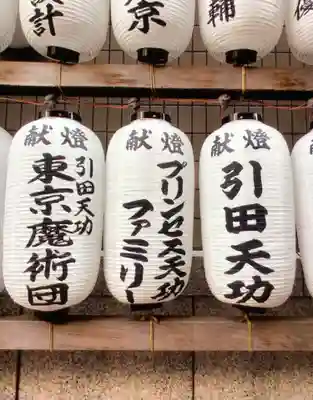 設計
京
輔
献燈
引田天功
東京魔術団
献燈
プリンセス天功
ファミリー
献燈
引田天功